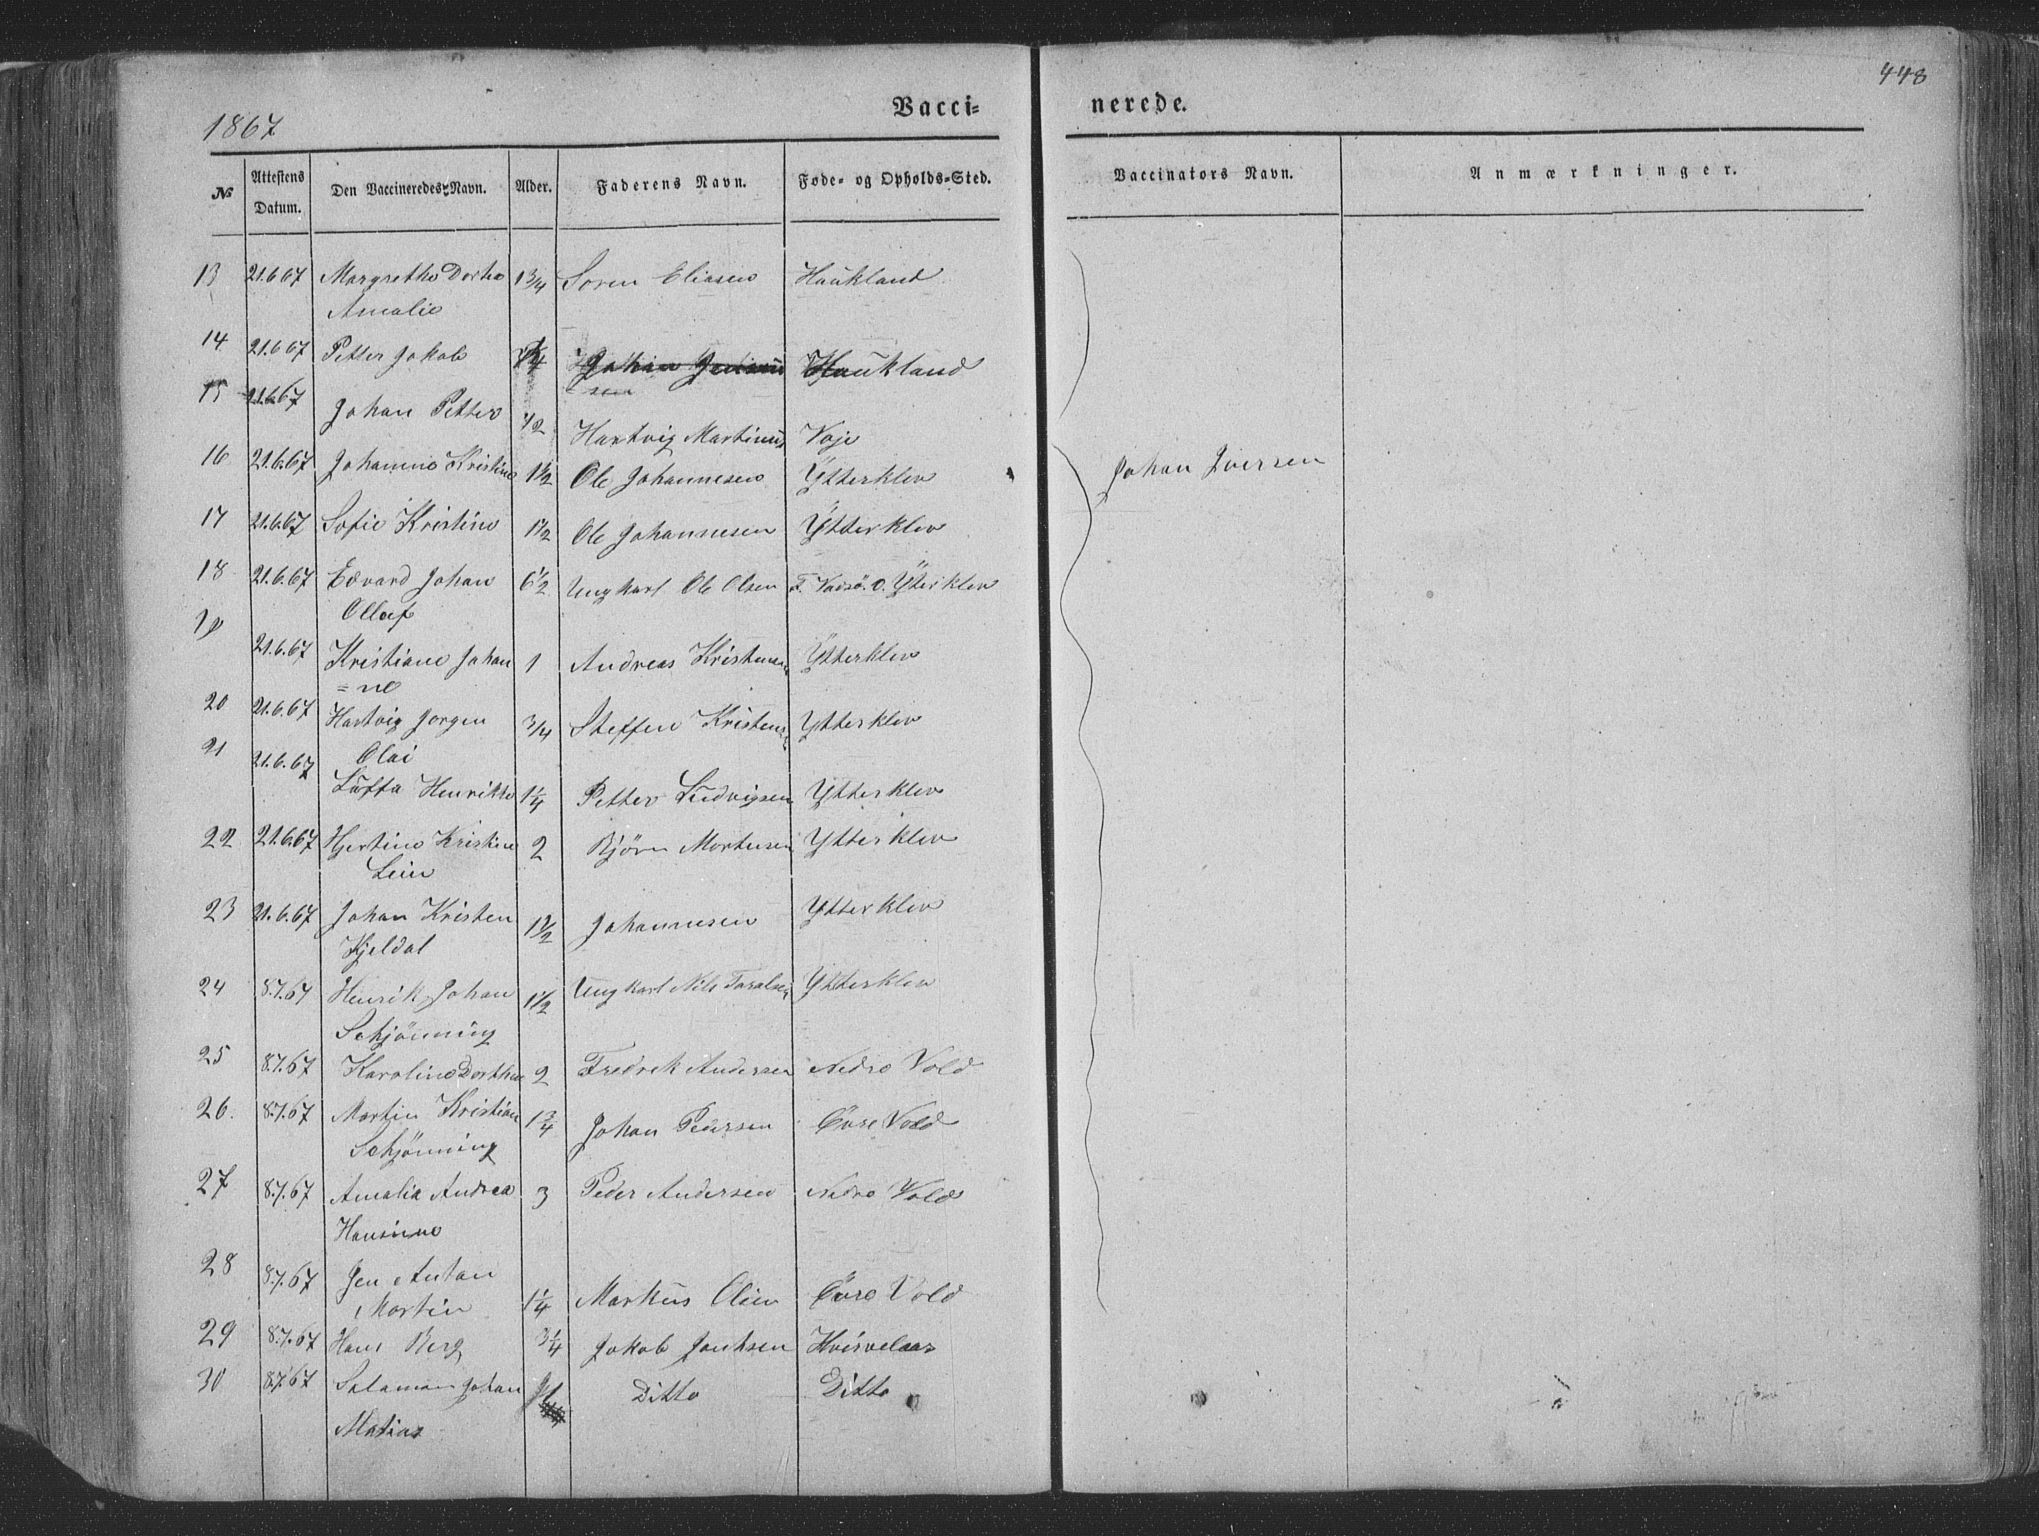 448
1867
Vacci- nerede.
№ Attestens Datum. Den Vaccineredes Navn. Alder. Faderens Navn. Føde- og Opholds-Sted. Vaccinators Navn. Anmærkninger.
13 21.6.67 Margrethe Dorthe 1 3/4 Soren Eliasen Haukland
Amalie
14 21.6.67 Petter Jakob Haukland
15 21.6.67 Johan Petter 1/2 Hartvig Martinus Voje
16 21.6.67 Johanne Kristine 1 1/2 Ole Johannesen Ytterklev Johan Iversen
17 21.6.67 Sofie Kristine 1 1/2 Ole Johannesen Ytterklev
18 21.6.67 Edvard Johan 6 1/2 Ungkarl Ole Olsen F. Vadsö. O. Ytterklev
Ollaf
19 21.6.67 Kristiane Johan 1 Andreas Kristensen Ytterklev
=ne
20 21.6.67 Hartvig Jorgen 3/4 Steffen Kristensen Ytterklev
Olai
21 21.6.67 Henritte 1 1/4 Petter Ludvigsen Ytterklev
22 21.6.67 Hjertine Kristine 2 Bjørn Mortensen Ytterklev
23 21.6.67 Johan Kristen 1 1/2 Johannesen Ytterklev
Kjeldal
24 8.7.67 Henrik Johan 1 1/2 Ungkarl Nils Toralsen Ytterklev
Schjönning
25 8.7.67 Karoline Dorthea 2 Fredrek Andersen Nedre Vold
26. 8.7.67 Martin Kristian 1 3/4 Johan Pedersen Övre Vold
Schjönning
27 8.7.67 Amalia Andrea 3 Peder Andersen Nedre Vold
Hansine
28 8.7.67 Jen Antan
Martin 1 1/4 Markus Olsen Övre Vold
29 8.7.67 Hans Berg 3 1/4 Jakob
30 8.7.67 Salamon Johan Ditto Ditto
Matias